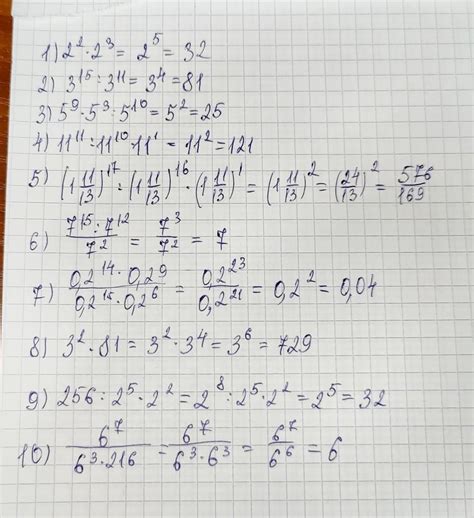 1) 2² · 2³ = 2⁵ = 32
2) 3¹⁵ : 3¹¹ = 3⁴ = 81
3) 5⁹ · 5³ : 5¹⁰ = 5² = 25
4) 11¹¹ : 11¹⁰ · 11¹ = 11² = 121
5) (1 11/13)¹⁷ : (1 11/13)¹⁶ · (1 11/13)¹ = (1 11/13)² = (24/13)² = 576/169
6) 7¹⁵ : 7¹² / 7² = 7³ / 7² = 7
7) 0,2¹⁴ · 0,2⁹ / 0,2¹⁵ · 0,2⁶ = 0,2²³ / 0,2²¹ = 0,2² = 0,04
8) 3² · 81 = 3² · 3⁴ = 3⁶ = 729
9) 256 : 2⁵ · 2² = 2⁸ : 2⁵ · 2² = 2⁵ = 32
10) 6⁷ / 6³ · 216 = 6⁷ / 6³ · 6³ = 6⁷ / 6⁶ = 6